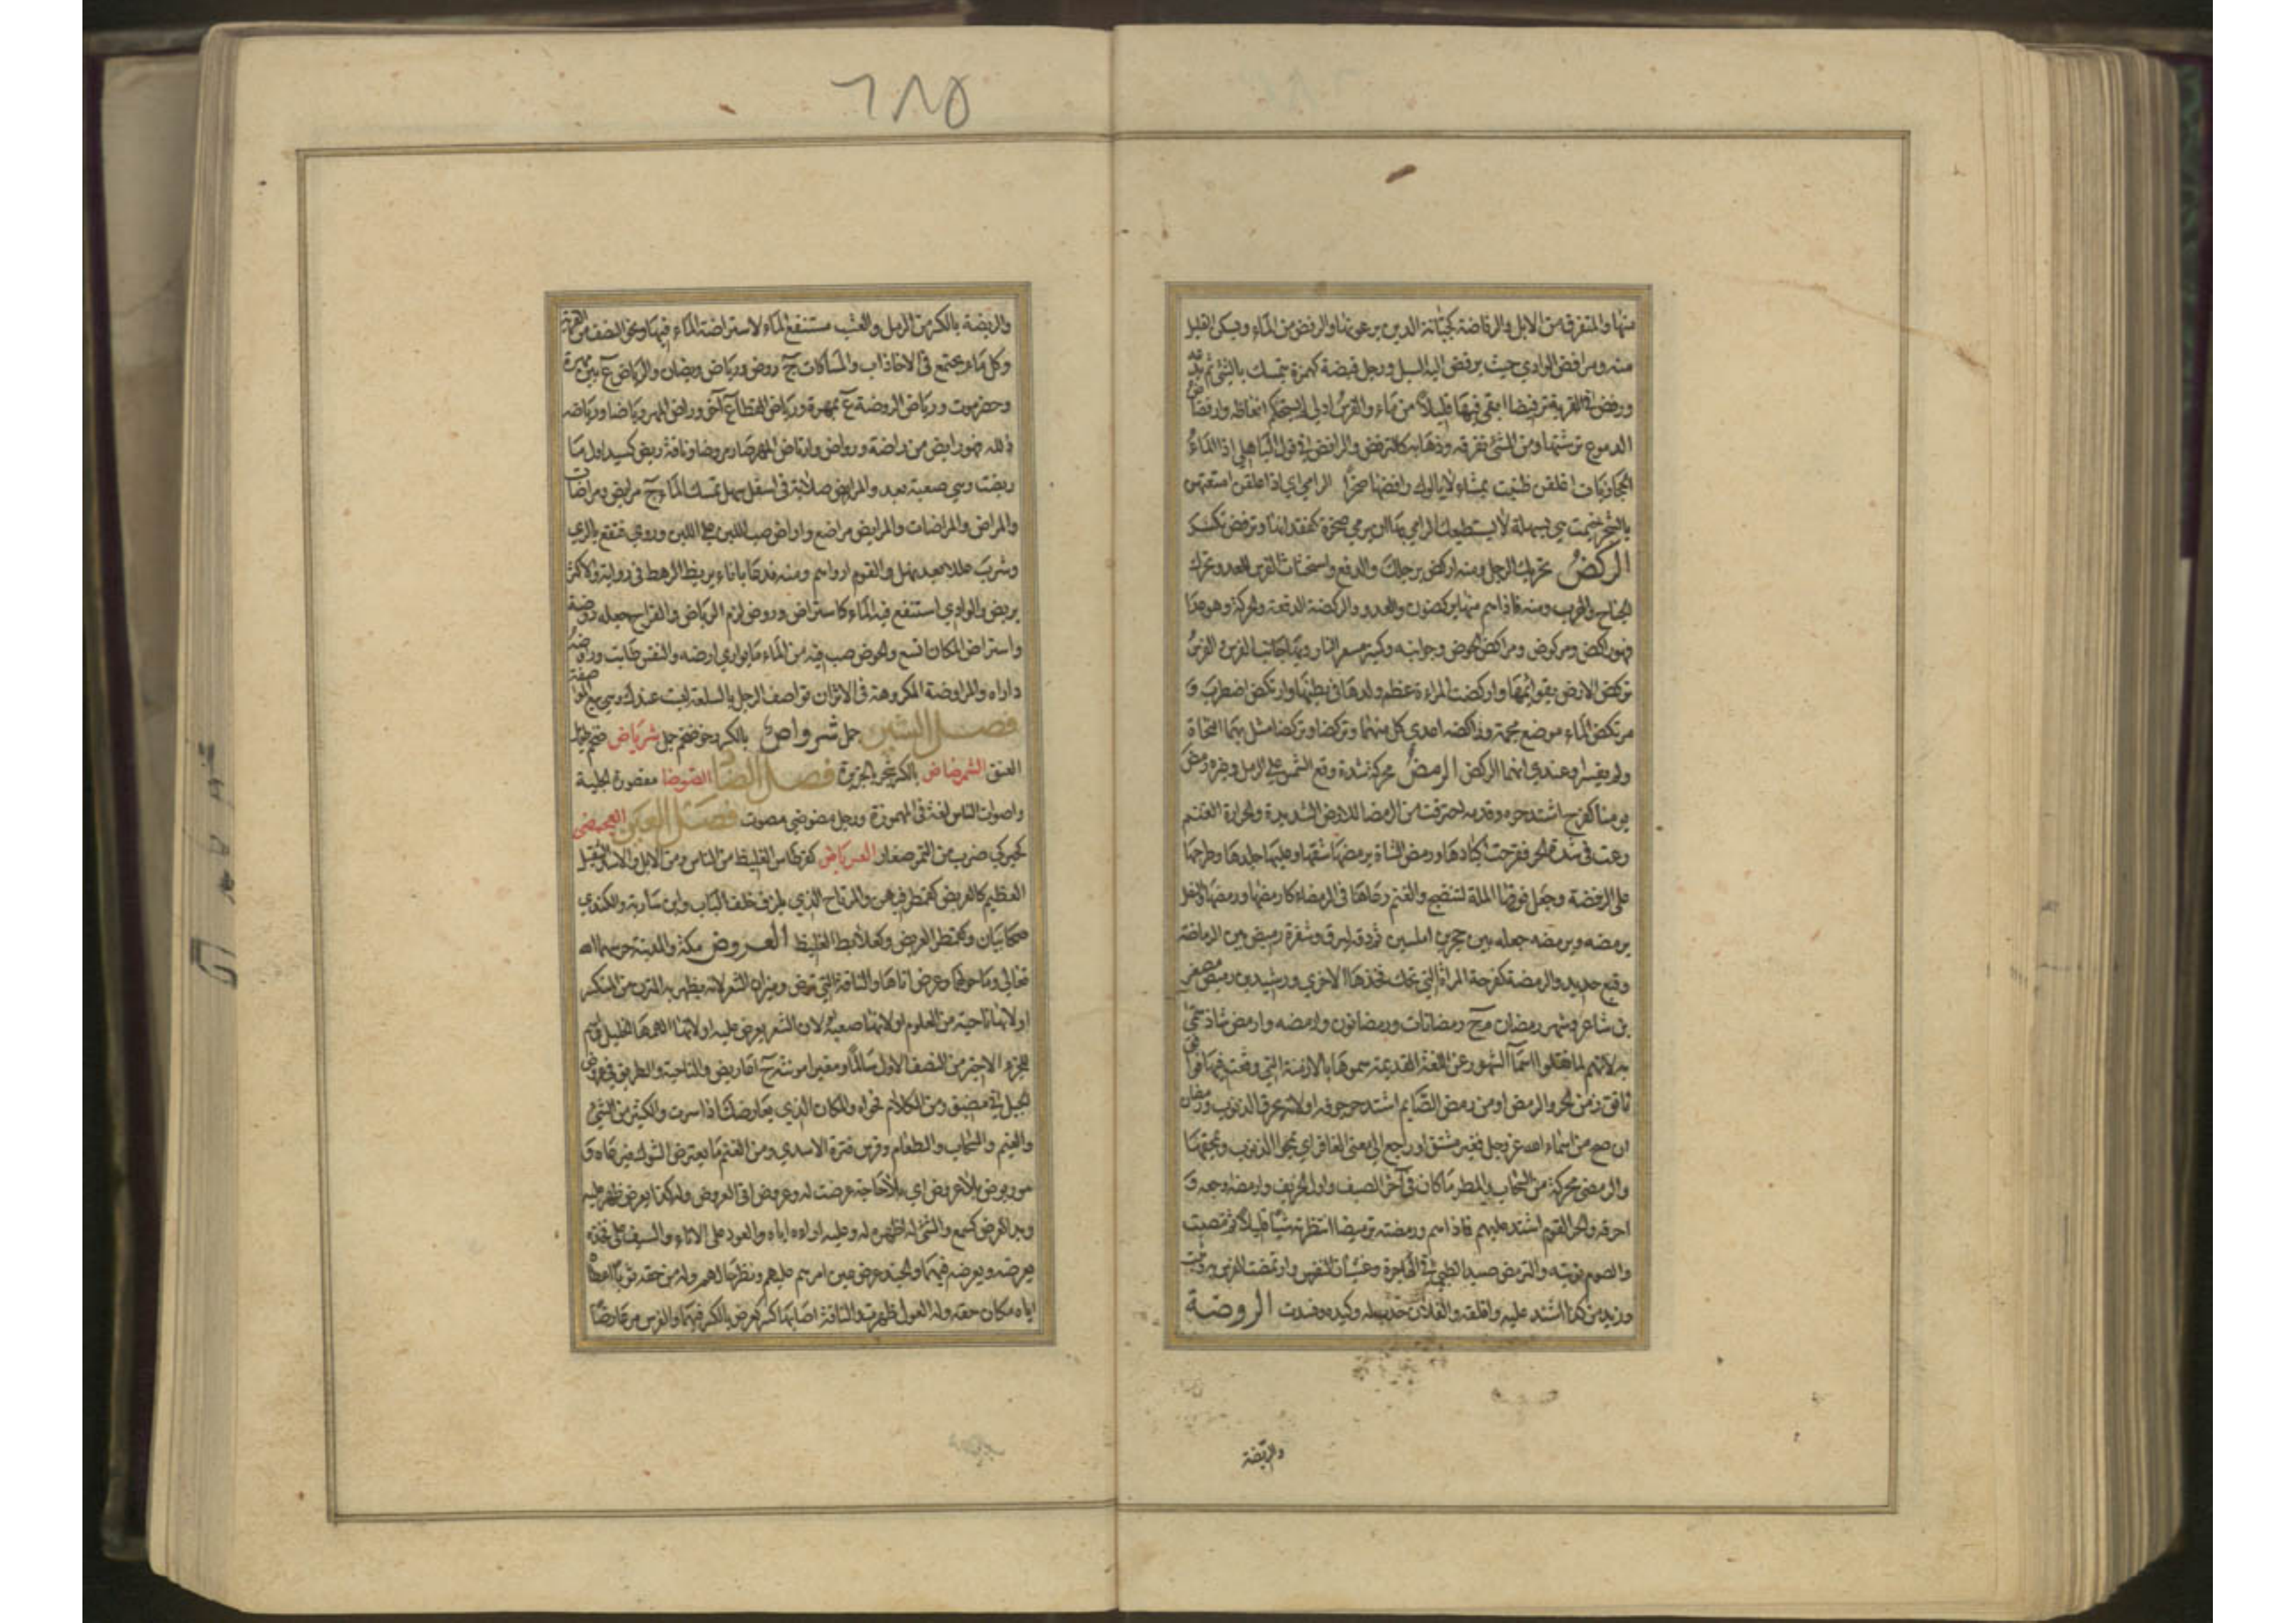 منها والمتفرق من الابل والرفاضة كجبانة الذين يرعونها والرفض من الماء ويسكن القليل
منه ومرافض الوادي حيث يرفض اليه السيل ورجل قبضة كهمزة يتمسك بالشئ ثم يدعه
ورفض في القربة ترفيضا ابقى فيها قليلاً من ماء والفرس ادلى ولم يستحكم انعاظه وارفضاض
الدموع ترششها ومن الشئ تفرقه وذهابه كالترفض والرافض في قول الباهلي اذا الماء
الحجازيات اعلقن طنبت بميثاء لايالوك رافضها صخراً الرامي اي اذا علقن امتعتهن
بالشجر خيمت هي بسهلة لا يستطيع الرامي بها ان يرمي صخرة لفقدانها وترفض تكسر
الركض تحريك الرجل ومنه اركض برجلك والدفع واستحثاث الفرس للعدو وتحرك
الجناح والهرب ومنه فاذاهم منها يركضون والعدو والركضة الدفعة والحركة وهو هذا
فهو راكض ومركوض ومراكض الحوض وجوانبه وكمنبر مسعر النار وبهاء جانب القوس والقوس
تركض الارض بقوائمها واركضت المراءة عظم ولدها في بطنها وارتكض اضطرب و
مرتكض الماء موضع مجمه وراكضه اعدى كل منهما وتركضا وتركضا مثل بهما النحاة
ولم يفسرا وعندي انهما الركض الرمض محركة شدة وقع الشمس على الرمل وغيره رمض
يومنا كفرح اشتد حره وقدمه احترقت من الرمضا للارض الشديدة والحرارة الغنم
رعت في شدة الحر فقرحت اكبادها ورمض الشاة يرمضها شقها وعليها جلدها وطرحها
على الرضفة وجعل فوقها الملة لتنضج والغنم رعاها في الرمضاء كارمضها ورمضها والنصل
يرمضه ويرمضه جعله بين حجرين املسين ثم دقه ليرق وشفرة رميض بين الرماضة
وقيع حديد والرمضة كفرحة المراة التي تحك فخذها الاخرى ورشيد بن رميض مصغرين
بن شاعر وشهر رمضان مع ج رمضانات ورمضانون وارمضه وارمض شاذ سمي
به لانهم لما نقلوا اسماً الشهور عن اللغة القديمة سموها بالازمنة التي وقعت فيها فوافق
ناتق زمن الحر والرمض او من رمض الصايم اشتد حر جوفه او لانه يحرق الذنوب ورمضان
ان صح من اسماء الله عز وجل فغير مشتق او راجع الى معنى الغافر اي يمحو الذنوب ويمحقها
والرمضي محركة من السحاب والمطر ما كان في آخر الصيف واول الخريف وارمضه اوجعه و
احرقه والحر القوم اشتد عليهم فاذاهم ورمضته ترميضا انتظرته شيئا قليلاً ثم مضيت
والصوم نويته والترمض صيد الظبي في الهاجرة وغثيان النفس وارتمضت الفرس به وثبت
وزيد من كذا اشتد عليه واقلقه ولفلان حدب له وكبده فسدت الروضة
والريضة
٦٨٥
والريضة بالكسر من الرمل والعشب مستنقع الماء لاستراضة الماء فيها ونحو النصف من القربة
وكل ماء يجتمع في الاخاذات والمساكات ج روض ورياض وريضان والرياض ع بين مهرة
وحضرموت ورياض الروضة ع بمهرة ورياض القطا ع آخر وراض المهر رياضا ورياضة
ذلله فهو رايض من راضة ورواض وارتاض المهر صار مروضا وناقة ريض كسيد اول ما
ريضت وهي صعبة بعد والمرايض صلابة في اسفل سهل تمسك الماء ج مرايض ومراضات
والمراض والمراضات والمرايض مواضع واراض صب اللبن على اللبن وروي فنقع بالري
وشرب عللا بعد نهل والقوم ارواهم ومنه فدعا باناء يريض الرهط في رواية والاكثر
يربض والوادي استنقع فيه الماء كاستراض وروض لزم الرياض والقراح جعله روضة
واستراض المكان اتسع والحوض صب فيه من الماء ما يواري ارضه والنفس طابت وراوضه
داراه والمراوضة المكروهة في الاثر ان تواصف الرجل بالسلعة ليست عندك وهي بيع المواصفة
فصل الشين جمل شرواض بالكسر رخو ضخم جمل شرياض ضخم طويل
العنق الشمرضاض بالكسر شجر بالجزيرة فصل الضا الضوضا مقصورة الجلبة
واصوات الناس لغة في المهموزة ورجل مضوضي مصوت فصل العين العجمضي
كحبركي ضرب من التمر صغار العرباض كقرطاس الغليظ من الناس ومن الابل والاسد الثقيل
العظيم كالعربض كقمطر فيهن والمرتاج الذي يلزق خلف الباب وابن سارية والكندي
صحابيان وكقمطر العريض وكعلابط الغليظ العروض مكة والمدينة حرسهما الله
تعالى وما حولهما وعرض اتاها والناقة التي لم ترض وميزان الشعر لانه يظهر به المتزن من المنكسر
او لانها ناحية من العلوم او لانها صعبة او لان الشعر يعرض عليه او لانها الهمها الخليل اسم
للجزء الاخير من النصف الاول سالماً او مغيرا مونثة ج اعاريض والناحية والطريق في عرض
الجبل في مضيق ومن الكلام فحواه والمكان الذي يعارضك اذا سرت والكثير من الشئ
والغيم والسحاب والطعام وفرس قرة الاسدي ومن الغنم ما يعترض الشوك فيرعاه و
هو ربوض بلا عروض اي بلا حاجة عرضت له وعروض اقى العروض وله كذا يعرض ظهر عليه
وبدا كعرض كسمع والشئ له اظهره له وعليه اراه اياه والعود على الاناء والسيف على فخذه
يعرضه ويعرضه فيهما والجند عرض عين امرهم عليهم ونظر حالهم وله من حقه ثوبا اعطاه
اياه مكان حقه وله الغول ظهرت والناقة اصابها كسر كعرض بالكسر فيهما والفرس مر عارضا